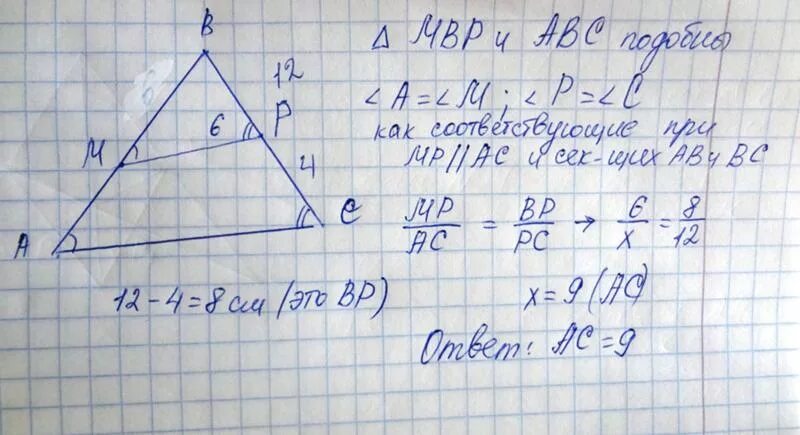 B
12
6
P
M
4
C
A
12-4=8см (это BP)
Δ MBP и ABC подобны
∠A=∠M; ∠P=∠C
как соответствующие при
MP//AC и сек-щих AB и BC
MP/AC = BP/PC → 6/x = 8/12
x=9 (AC)
Ответ: AC=9